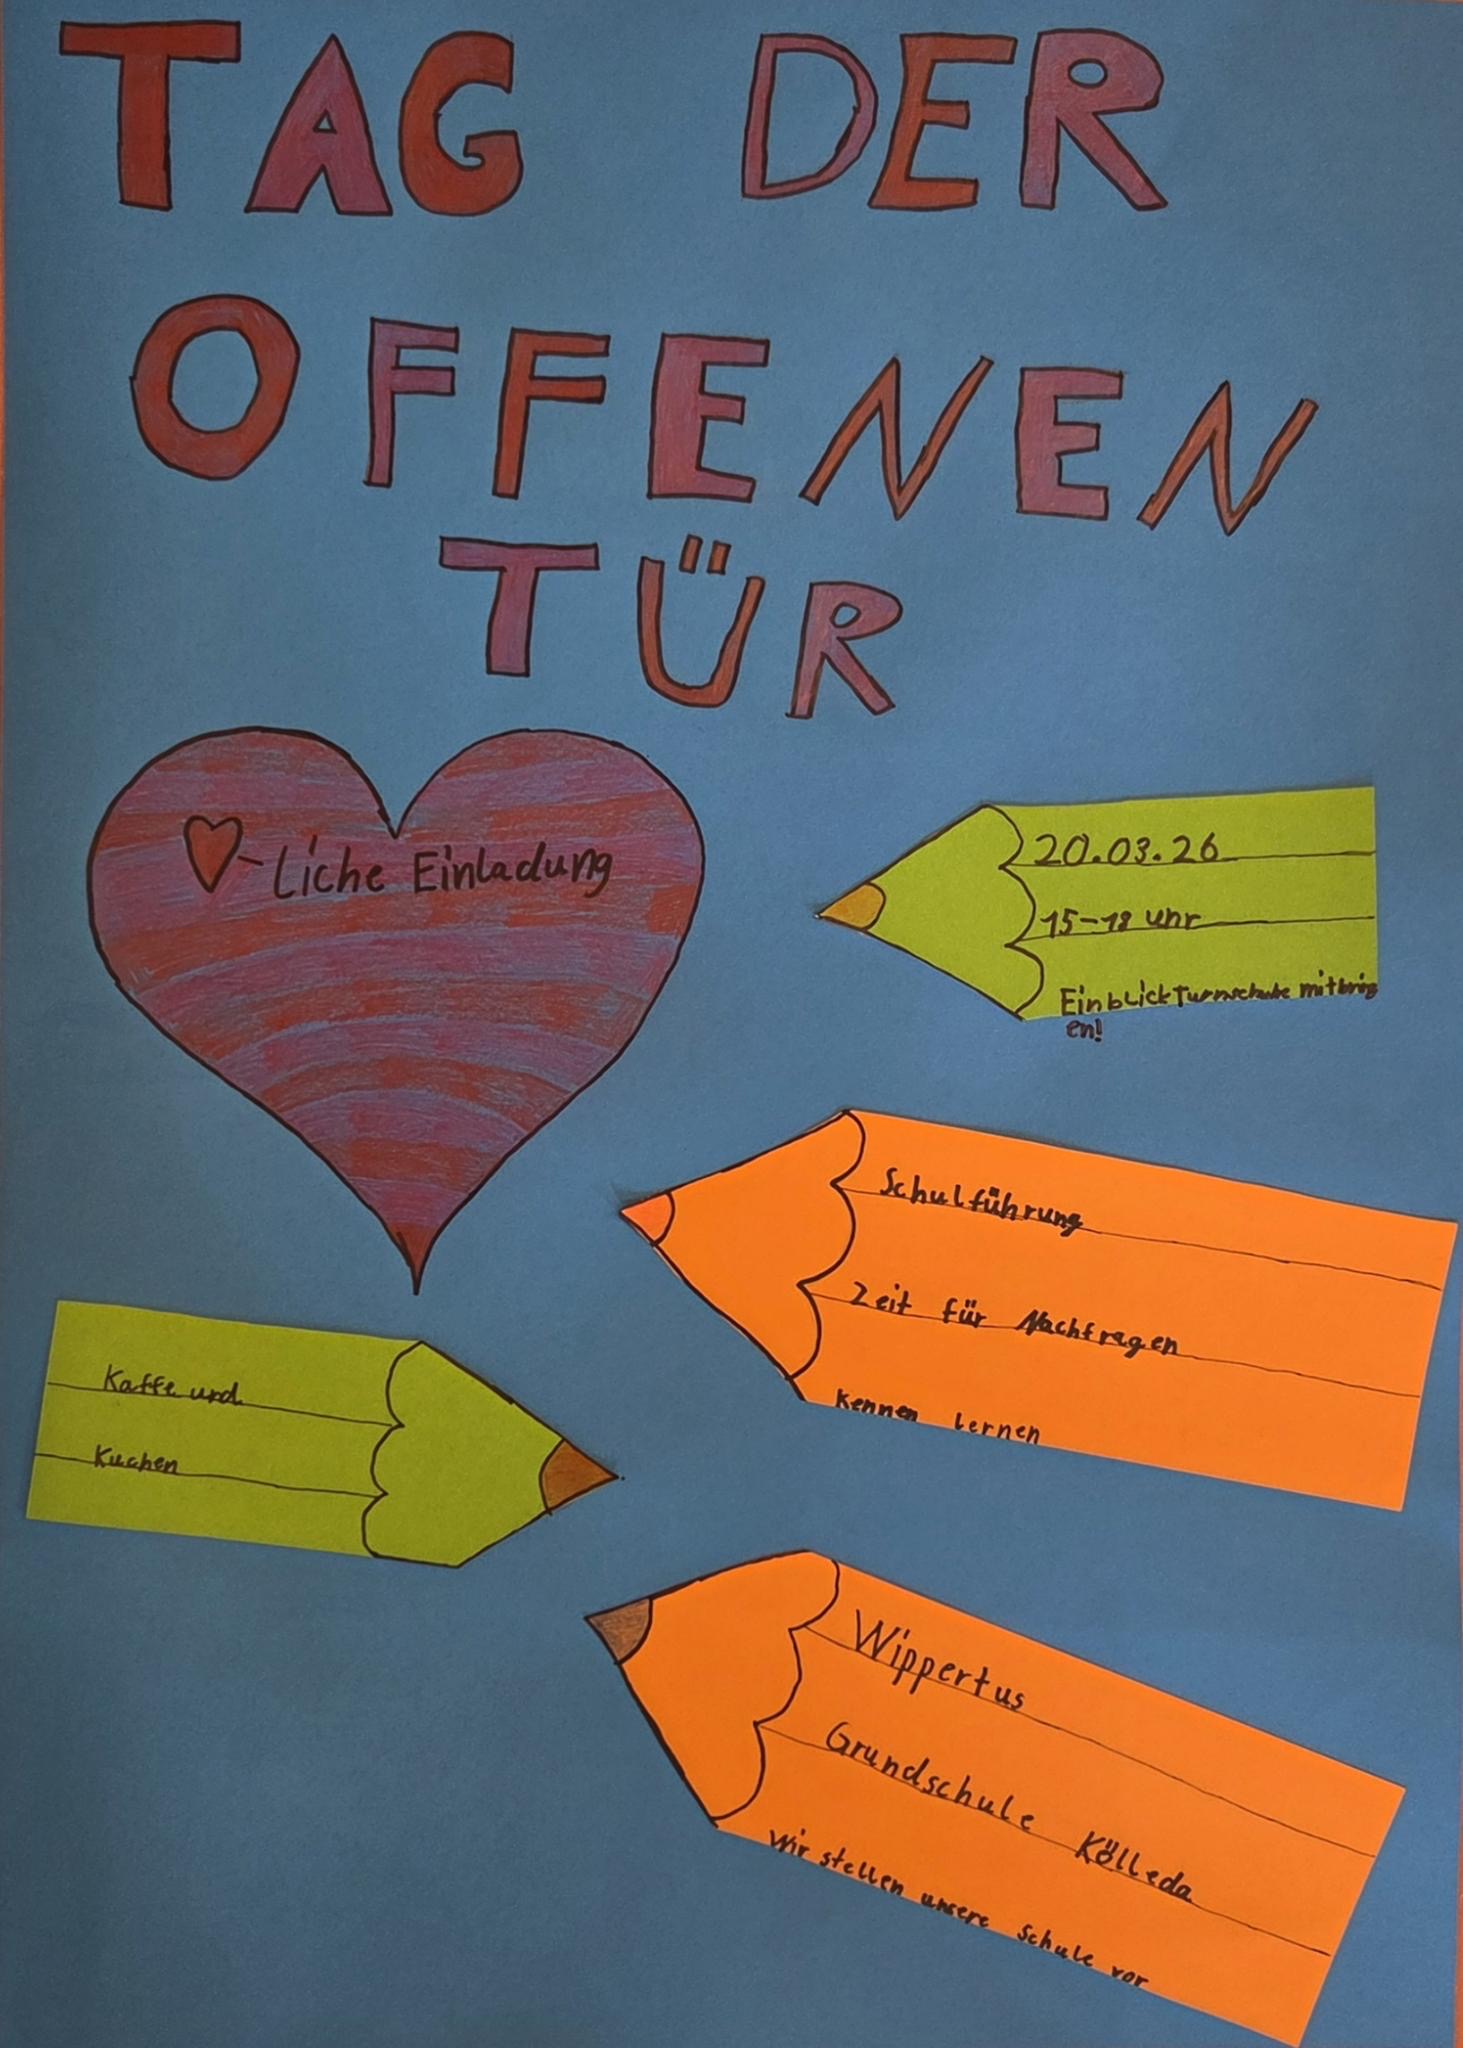 TAG DER
OFFENEN
TÜR
-liche Einladung
20.03.26
15-18 uhr
Einblick Turnschuhe mitbring
en!
Schulführung
Zeit für Nachfragen
Kennen lernen
Kaffe und
Kuchen
Wippertus
Grundschule Kölleda
Wir stellen unsere Schule vor